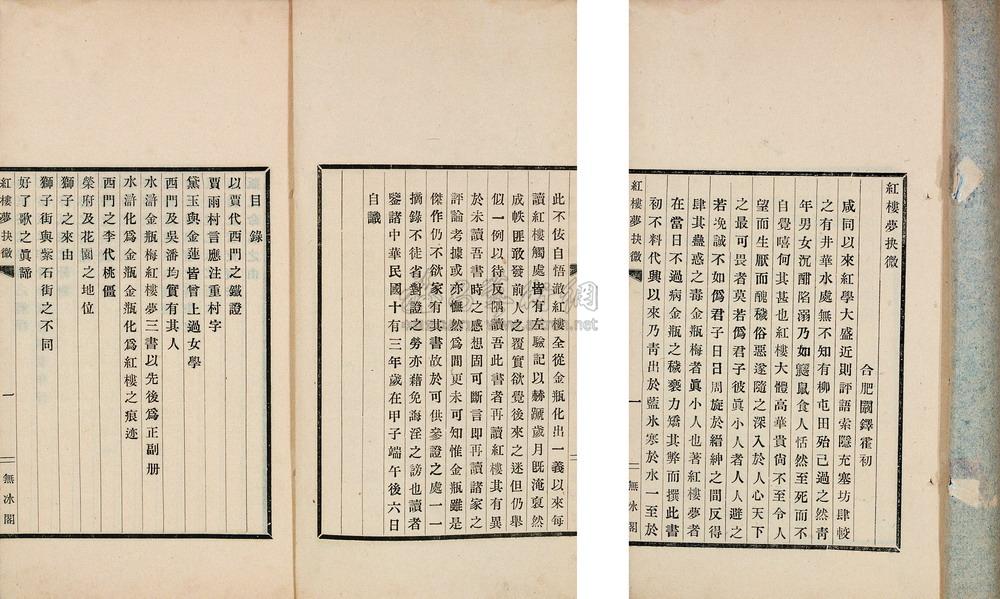 紅樓夢抉微
合肥闞鐸霍初
咸同以來紅學大盛近則評語索隱充塞坊肆較
之有井華水處無不知有柳屯田殆已過之然青
年男女沉酣陷溺乃如鼷鼠食人恬然至死而不
自覺嘻何其甚也紅樓大體高華貴尙不至令人
望而生厭而醜穢俗惡遂隨之深入於人心天下
之最可畏者莫若僞君子彼眞小人者人人避之
若浼誠不如僞君子日日周旋於縉紳之間反得
肆其蠱惑之毒金瓶梅者眞小人也著紅樓夢者
在當日不過病金瓶之穢褻力矯其弊而撰此書
初不料代興以來乃靑出於藍氷寒於水一至於
紅樓夢抉微
一
無冰閣
此不佞自悟澈紅樓全從金瓶化出一義以來每
讀紅樓觸處皆有左驗記以赫蹏歲月旣淹裒然
成帙匪敢發前人之覆實欲覺後來之迷但仍舉
似一例以待反隅讀吾此書者再讀紅樓其有異
於未讀吾書時之感想固可斷言卽再讀諸家之
評論考據或亦憮然爲間更未可知惟金瓶雖是
傑作仍不欲家有其書故於可供參證之處一一
摘錄不徒省對證之勞亦藉免誨淫之謗也讀者
鑒諸中華民國十有三年歲在甲子端午後六日
自識
目錄
以賈代西門之鐵證
賈雨村言應注重村字
黛玉與金蓮皆曾上過女學
西門及吳潘均實有其人
水滸金瓶梅紅樓夢三書以先後爲正副册
水滸化爲金瓶金瓶化爲紅樓之痕迹
西門之李代桃僵
榮府及花園之地位
獅子之來由
獅子街與紫石街之不同
好了歌之眞諦
紅樓夢抉微
一
無冰閣